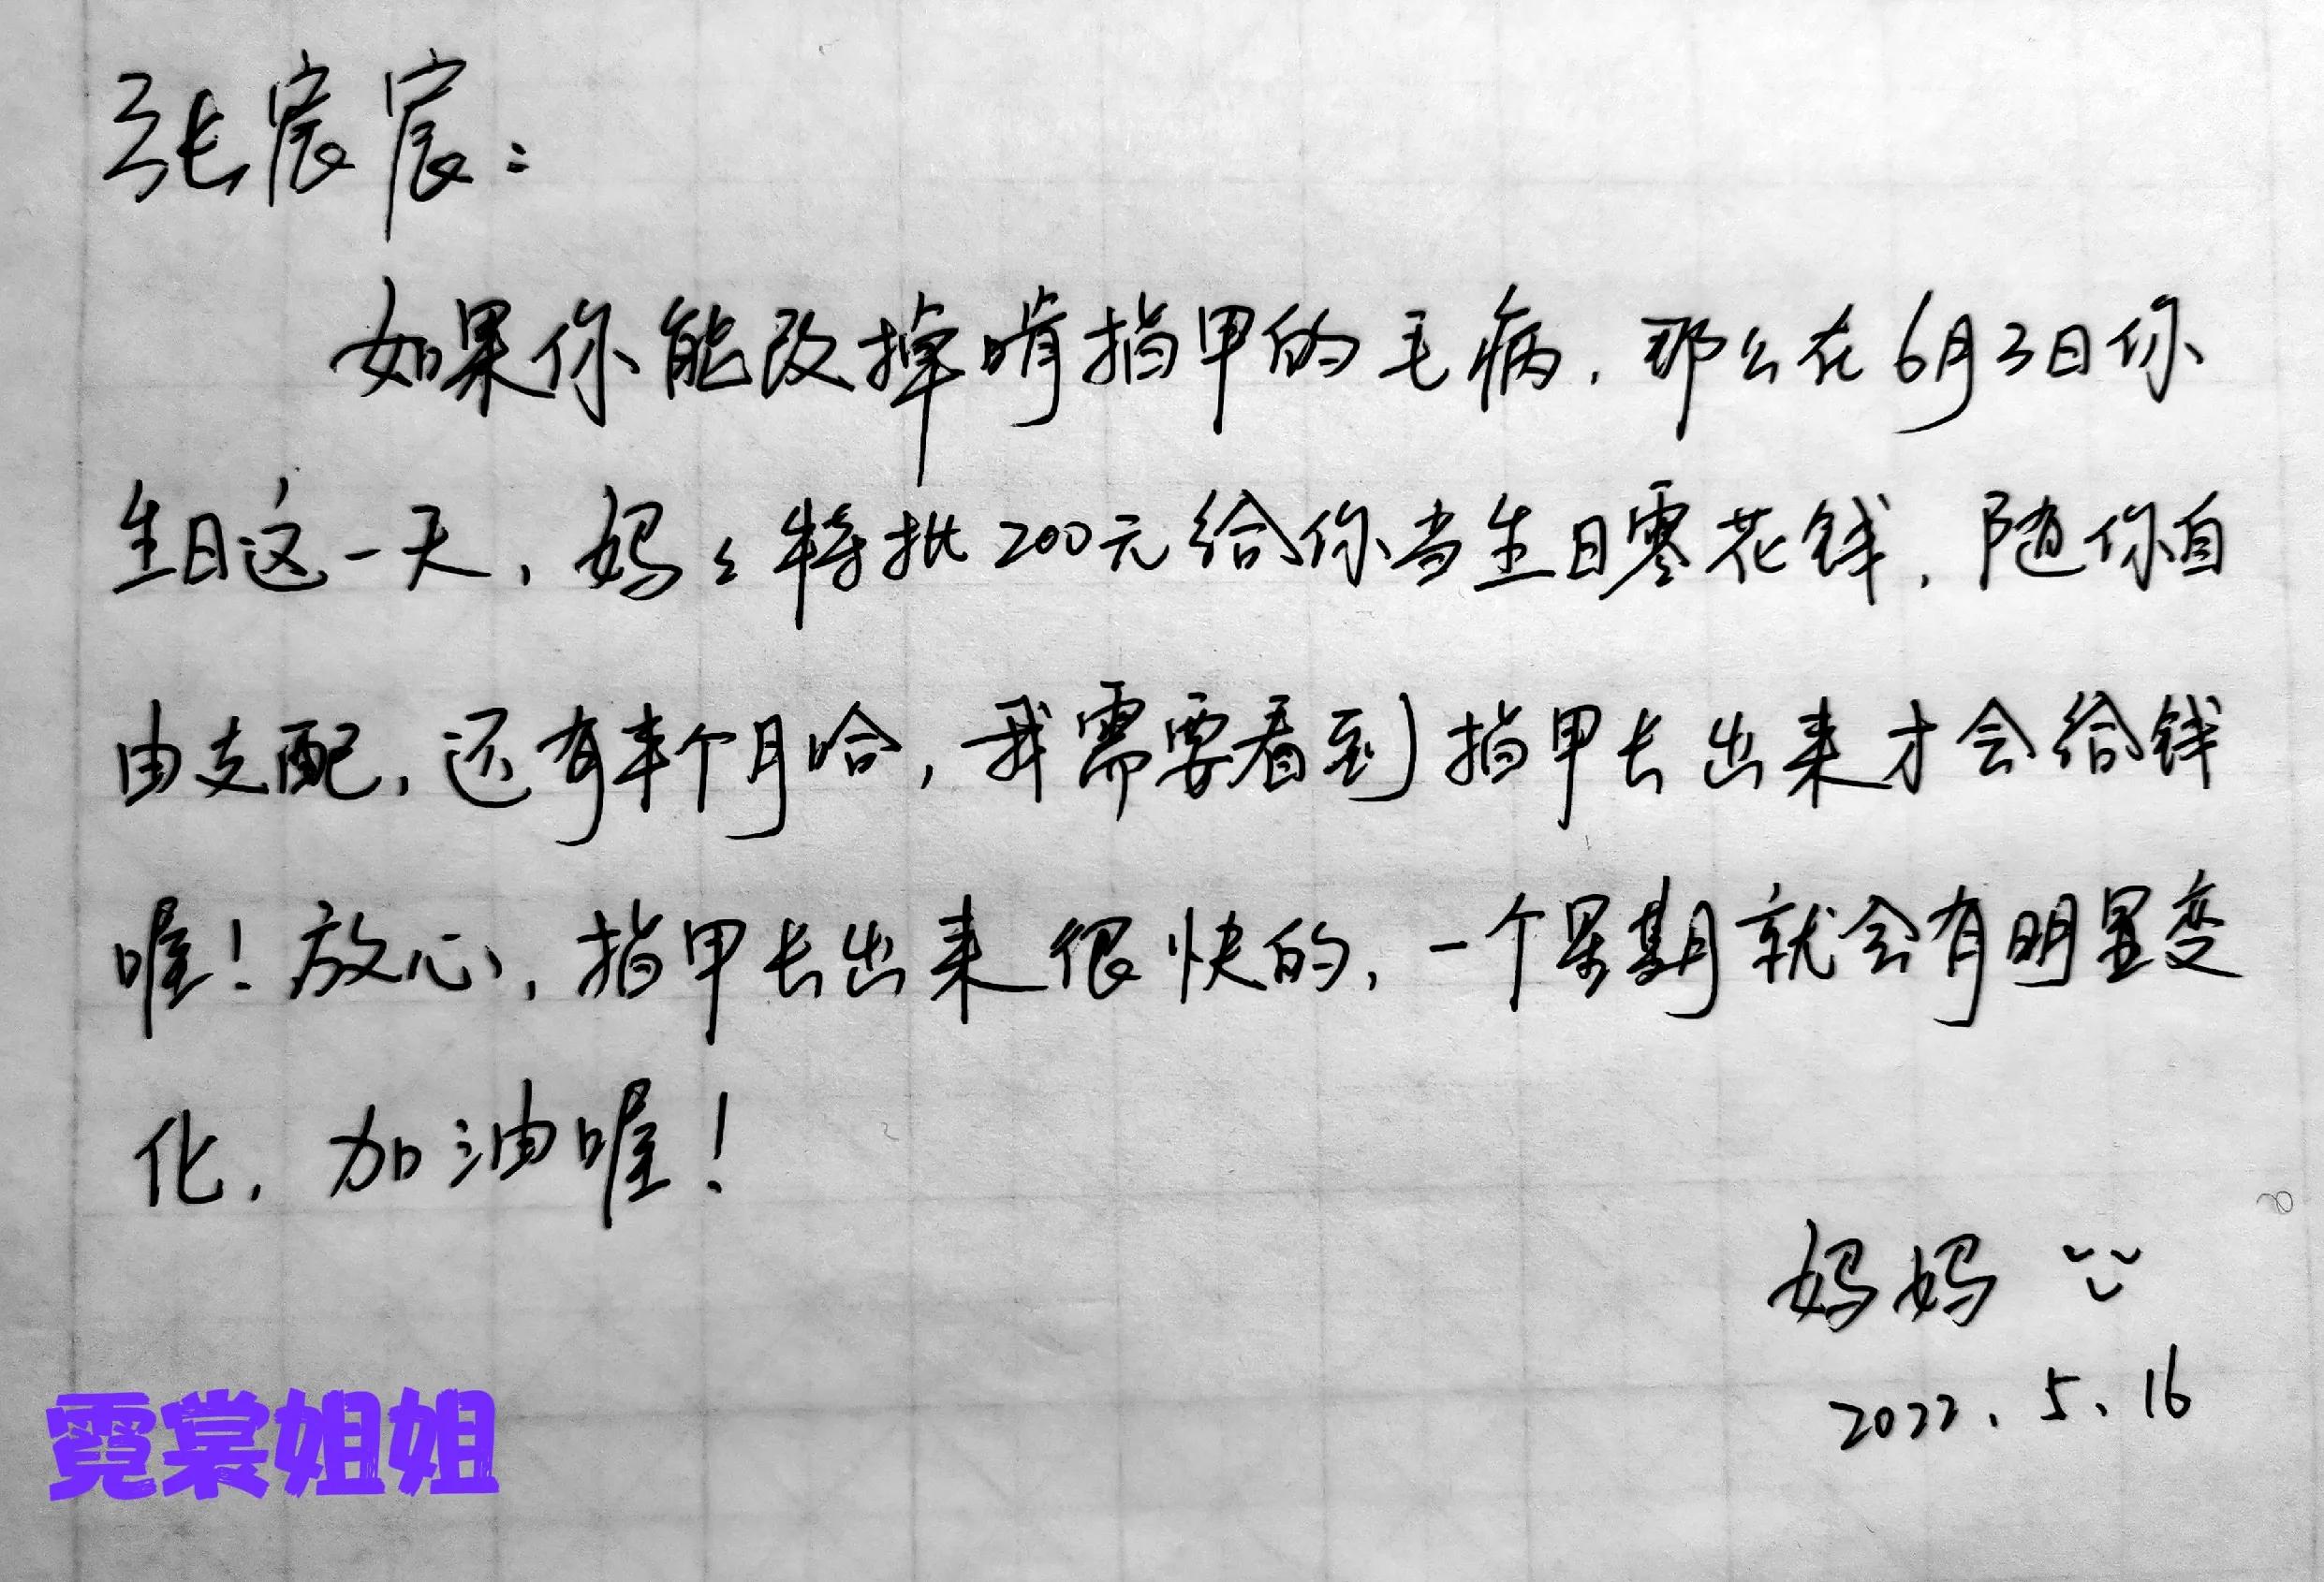 张宸宸：
如果你能改掉啃指甲的毛病，那么在6月3日你
生日这一天，妈々特批200元给你当生日零花钱，随你自
由支配，还有半个月哈，我需要看到指甲长出来才会给钱
喔！放心，指甲长出来很快的，一个星期就会有明显变
化，加油喔！
妈妈
2022.5.16
霓裳姐姐